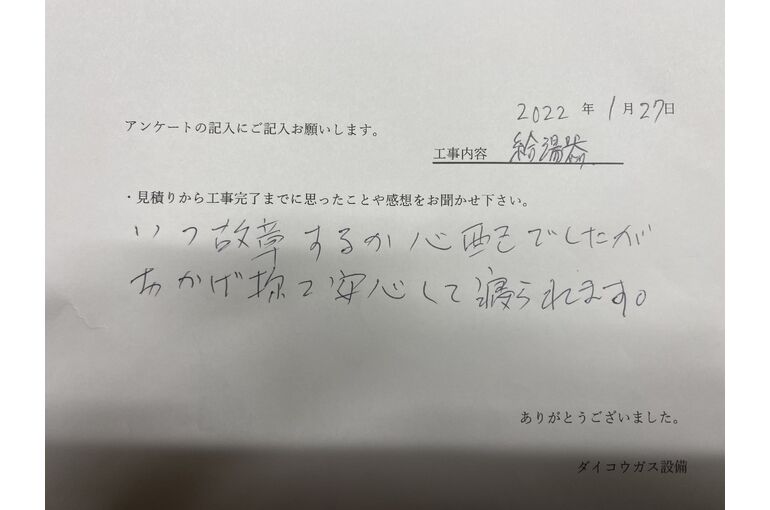 2022 年 1 月 27 日
アンケートの記入にご記入お願いします。
工事内容 給湯器
・見積りから工事完了までに思ったことや感想をお聞かせ下さい。
いつ故障するか心配でしたが
おかげ様で安心して寝られます。
ありがとうございました。
ダイコウガス設備